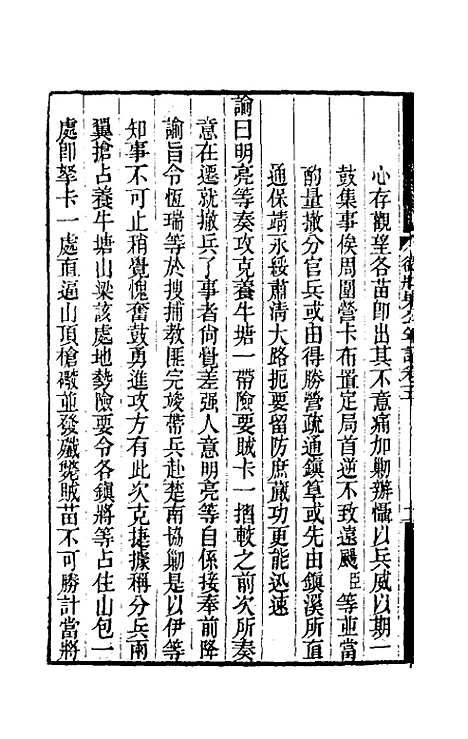 心存觀望各苗卽出其不意痛加勦辦懾以兵威以期一
鼓集事俟周圍營卡布置定局首逆不致遠颺臣等並當
酌量撤分官兵或由得勝營疏通鎮筸或先由鎮溪所直
通保靖永綏肅清大路扼要留防庶蕆功更能迅速
諭曰明亮等奏攻克養牛塘一帶險要賊卡一摺較之前次所奏
意在遷就撤兵了事者尙覺差强人意明亮等自係接奉前降
諭旨令恆瑞等於搜捕教匪完竣帶兵赴楚南協勦是以伊等
知事不可止稍覺愧奮鼓勇進攻方有此次克捷據稱分兵兩
翼搶占養牛塘山梁該處地勢險要令各鎮將等占住山包一
處卽拏卡一處直逼山頂槍礮並發殲斃賊苗不可勝計當將